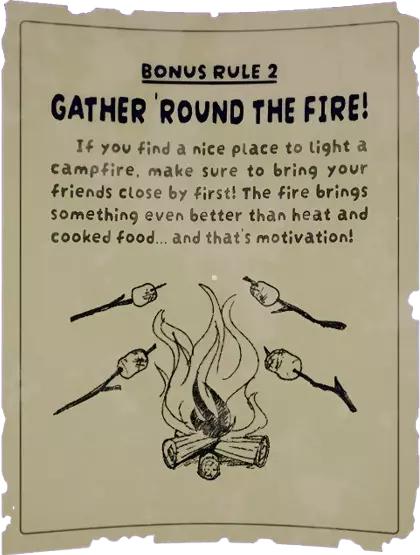 BONUS RULE 2
GATHER 'ROUND THE FIRE!
If you find a nice place to light a
campfire, make sure to bring your
friends close by first! The fire brings
something even better than heat and
cooked food... and that's motivation!